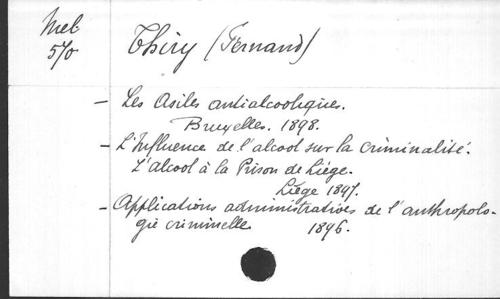 Mel
570
Thiry (Fernand)
- Les Asiles antialcooliques.
Bruxelles. 1898.
- L'Influence de l'alcool sur la criminalité.
L'alcool à la Prison de Liège.
Liège 1897.
- Applications administratives de l'anthropolo-
gie criminelle 1896.